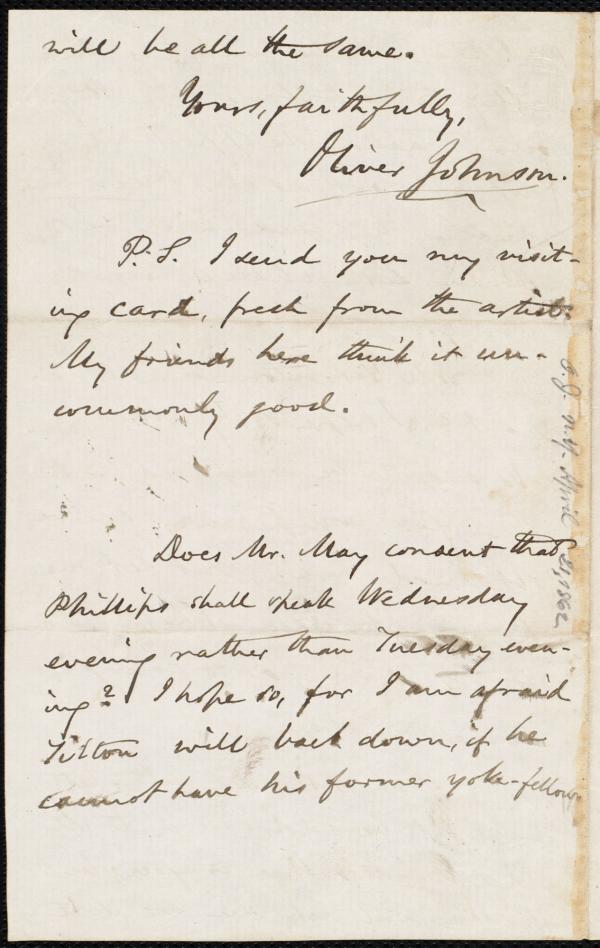 will be all the same.
Yours, faithfully,
Oliver Johnson.
P.S. I send you my visit-
ing card, fresh from the artist.
My friends here think it un-
commonly good.
Does Mr. May consent that
Phillips shall speak Wednesday
evening rather than Tuesday even-
ing? I hope so, for I am afraid
Tilton will back down, if he
cannot have his former yoke-fellow
O. J. N.Y. April 21, 1862